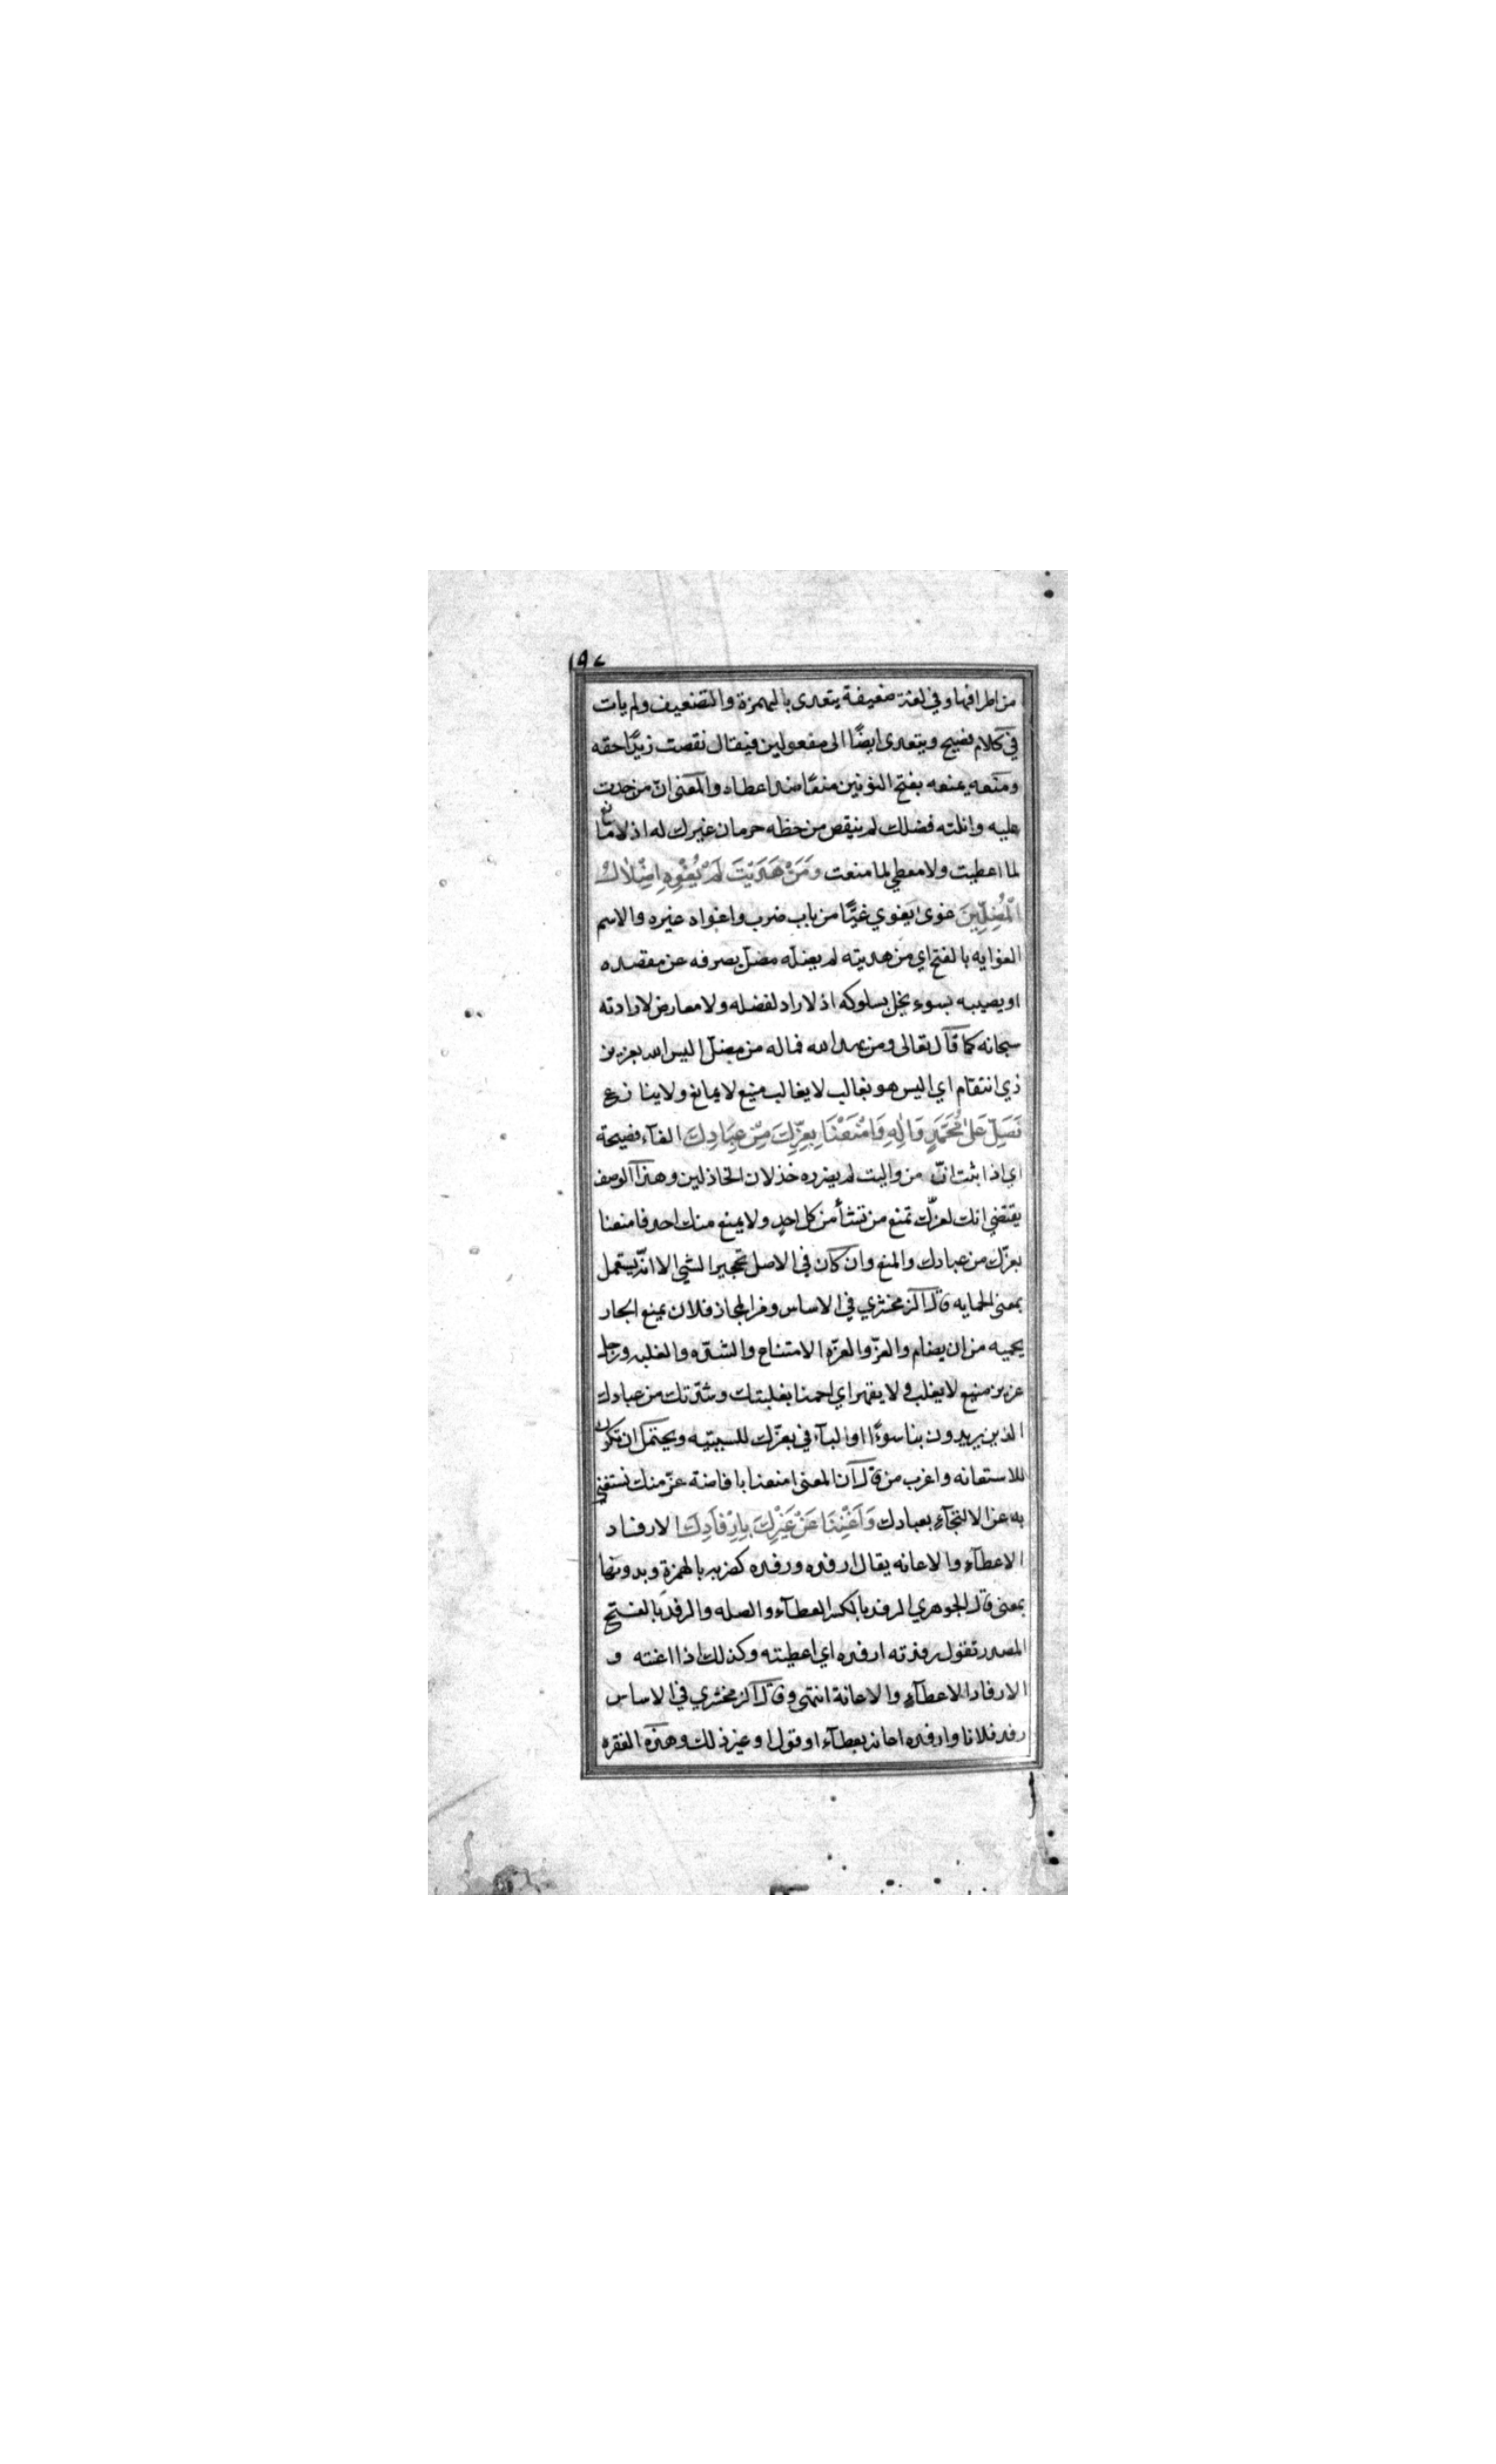 ١٩٧
من اطرافها وفي لغة ضعيفة يتعدى بالهمزة والتضعيف ولم يات
في كلام فصيح ويتعدى ايضًا الى مفعولين فيقال نقصت زيدًا حقه
ومنعه يمنعه بفتح النونين منعًا ضد اعطاه والمعنى ان من جدت
عليه وانلته فضلك لم ينقص من حظه حرمان غيرك له اذ لا مانع
لما اعطيت ولا معطي لما منعت وَمَنْ هَدَيْتَ لَمْ يُغْوِهِ اِضْلَالُ
الْمُضِلِّينَ غوى يغوي غيًّا من باب ضرب واغواه غيره والاسم
الغوايه بالفتح اي من هديته لم يضله مضل بصرفه عن مقصده
او يصيبه بسوء يخل بسلوكه اذ لا راد لفضله ولا معارض لارادته
سبحانه كما قال تعالى ومن يهد الله فما له من مضل اليس الله بعزيز
ذي انتقام اي اليس هو بغالب لا يغالب منيع لا يمانع ولا ينازع
فَصَلِّ عَلىٰ مُحَمَّدٍ وَاٰلِهِ وَامْنَعْنَا بِعِزِّكَ مِنْ عِبَادِكَ الفآء فصيحة
اي اذا ثبت انّ من واليت لم يضرره خذلان الخاذلين وهذا الوصف
يقتضي انك لعزك تمنع من تشأ من كل احدٍ ولا يمنع منك احد فامنعنا
بعزّك من عبادك والمنع وان كان في الاصل تحجير الشي الا انّه يستعمل
بمعنى الحمايه قال الزمخشري في الاساس ومن المجاز فلان يمنع الجار
يحميه من ان يضام والعزّ والعزّه الامتناع والشدّه والغلبه ورجل
عزيز منيع لا يغلب ولا يقهر اي احمنا بغلبتك وشدّتك من عبادك
الذين يريدون بنا سوءًا والبآء في بعزّك للسببيّه ويحتمل ان تكون
للاستعانه واغرب من قال ان المعنى امنعنا بافاضة عزّ منك نستغني
به عن الالتجآء بعبادك وَاَغْنِنَا عَنْ غَيْرِكَ بِاِرْفَادِكَ الارفاد
الاعطآء والاعانه يقال ارفده ورفده كضربه بالهمزة وبدونها
بمعنى قال الجوهري الرفد بالكسر العطآء والصله والرفد بالفتح
المصدر تقول رفدته ارفده اي اعطيته وكذلك اذا اعنته و
الارفاد الاعطآء والاعانة انتهى وقال الزمخشري في الاساس
رفد فلانا وارفده اعانه بعطآء او قول او غير ذلك وهذه الفقره